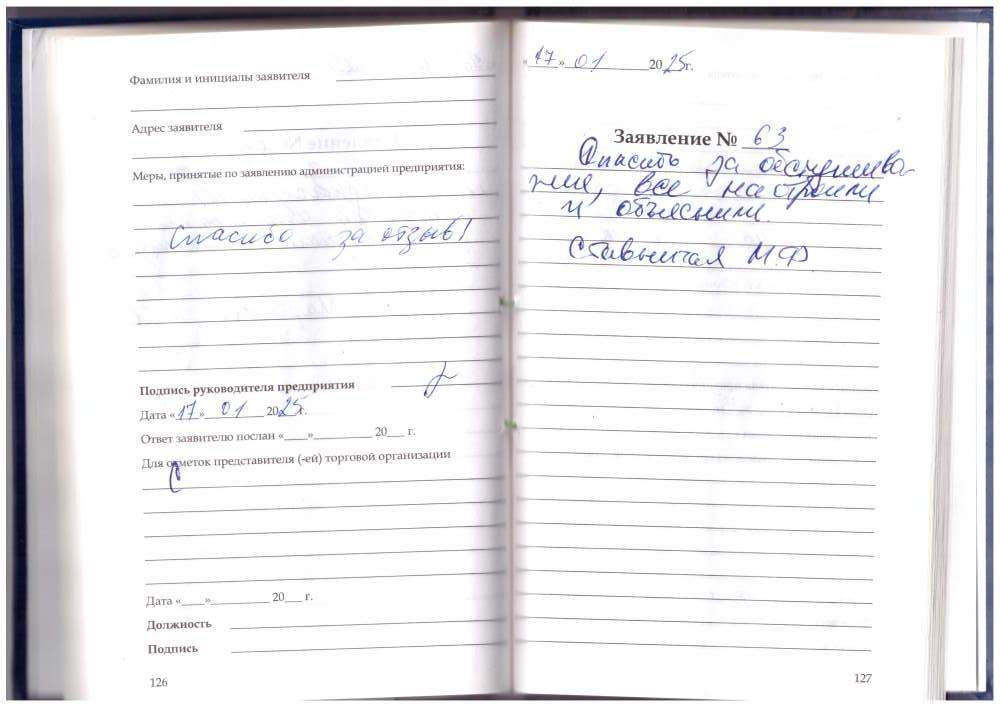 Фамилия и инициалы заявителя
Адрес заявителя
Меры, принятые по заявлению администрацией предприятия:
Спасибо за отзыв!
Подпись руководителя предприятия
Дата «17» 01 2025г.
Ответ заявителю послан «____»__________ 20___ г.
Для отметок представителя (-ей) торговой организации
Дата «____»__________ 20___ г.
Должность
Подпись
126
«17» 01 2025г.
Заявление № 63
Спасибо за обслужива-
ние, все настроили
и объяснили.
М.Ф.
127